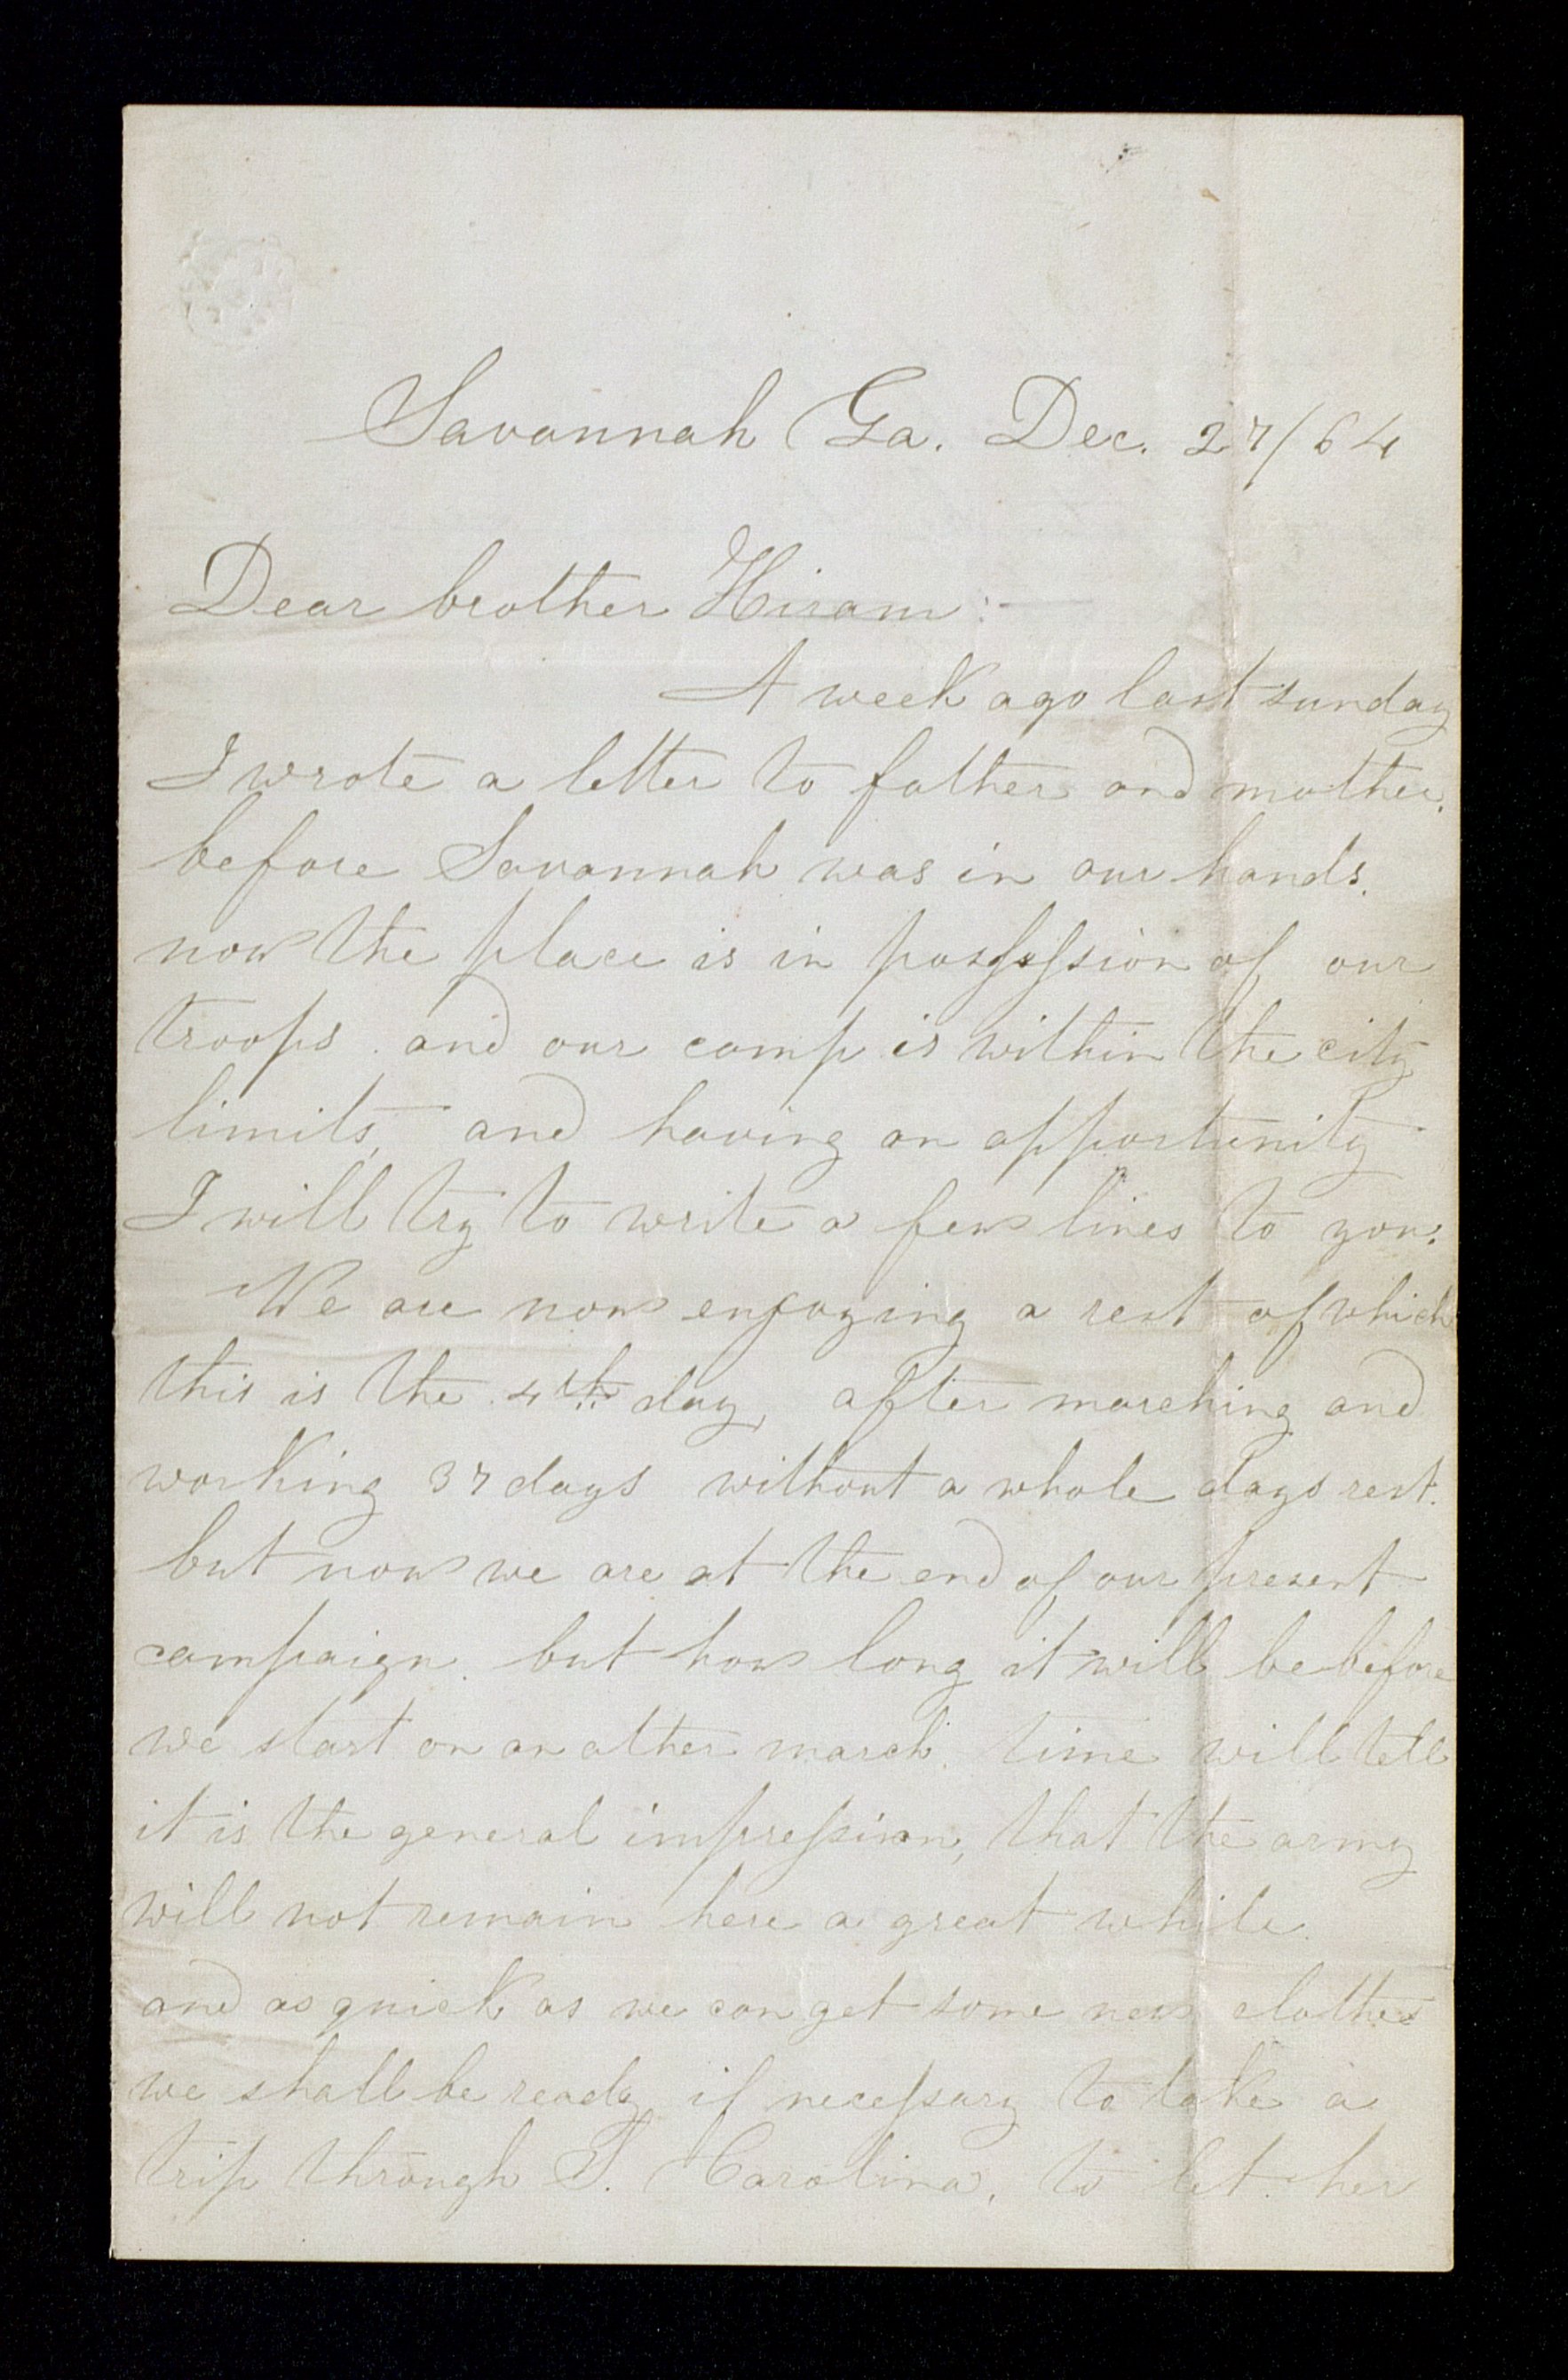 Savannah Ga. Dec. 27/64
Dear brother Hiram:-
A week ago last sunday
I wrote a letter to father and mother.
before Savannah was in our hands.
now the place is in possession of our
troops. and our camp is within the city
limits, and having an opportunity
I will try to write a few lines to you.
We are now enjoying a rest of which
this is the 4th day, after marching and
working 37 days without a whole days rest.
but now we are at the end of our present
campaign. but how long it will be before
we start on an other march. time will tell
it is the general impression, that the army
will not remain here a great while.
and as quick as we can get some new clothes
we shall be ready if necessary to take a
trip through S. Carolina, to let her